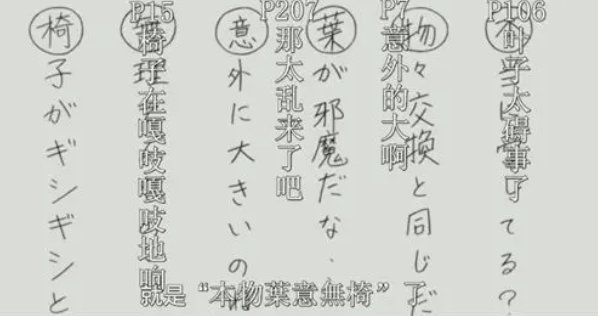 てる?
P106
叶子太碍事了
物々交換と同じだ
P7
意外的大啊
葉が邪魔だな
P207
那太乱来了吧
意外に大きいの
P15
椅子在嘎吱嘎吱地响
椅子がギシギシと
就是“本物葉意無椅”了